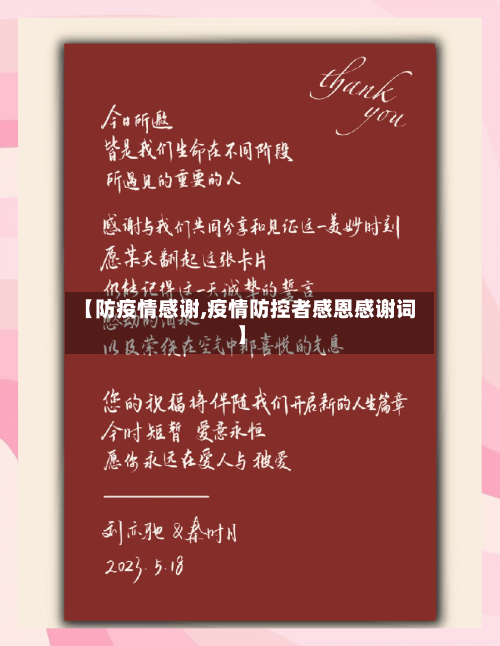 thank
you
今日所邀
皆是我们生命在不同阶段
所遇见的重要的人
感谢与我们共同分享和见证这一美妙时刻
愿某天翻起这张卡片
仍能记得这一天诚挚的誓言
感动的泪水
【防疫情感谢,疫情防控者感恩感谢词
】
以及萦绕在空气中那喜悦的气息
您的祝福将伴随我们开启新的人生篇章
今时短暂 爱意永恒
愿你永远在爱人与被爱
刘亦驰 & 秦时月
2023.5.18